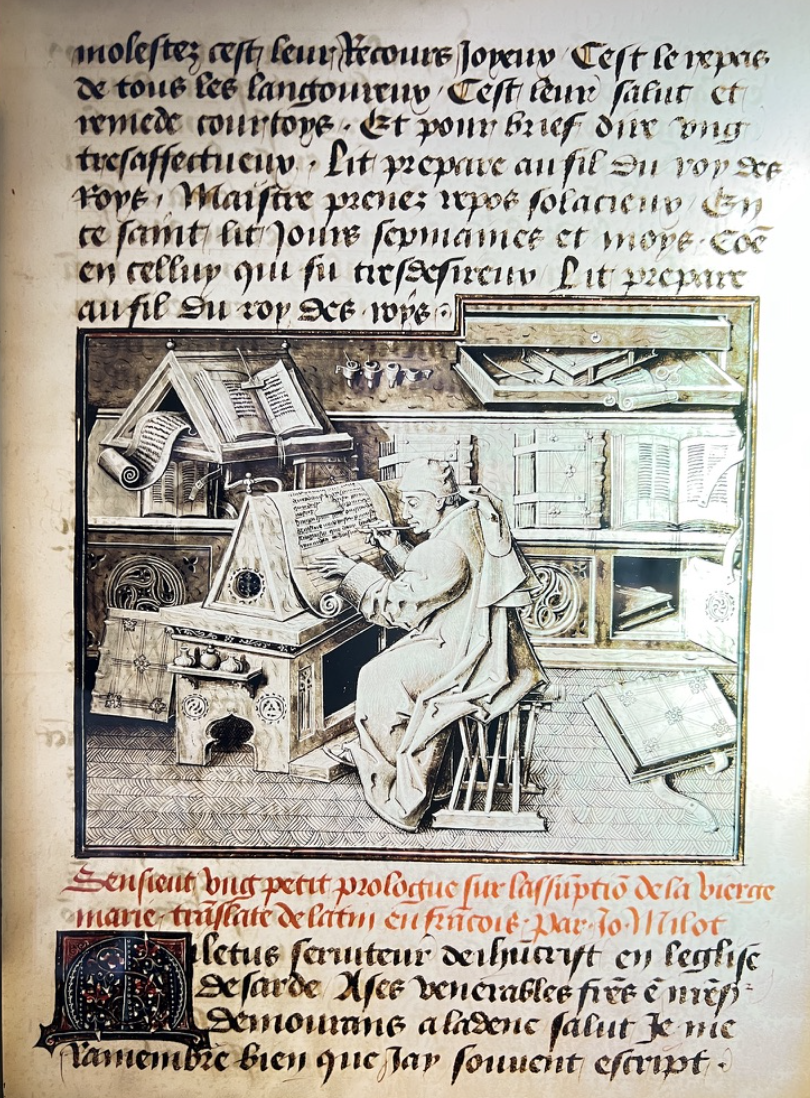 molestez cest leur Recours Joyeux Cest le repos
de tous les langoureux · Cest leur salut et
remede courtoys · Et pour brief dire vng
tresaffectueux · Lit prepare au fil du roy des
Roys · Maistre prenez repos solacieux En
ce saint lit Jours sepmaines et moys · Coē
en celluy qui fu tresdesireux Lit prepare
au fil du roy des roys ·
Sensieut vng petit prologue sur lassūptiō de la vierge
marie · trāslate de latin en frācois · Par · Jo · Milot
Miletus seruiteur de ihūcrist en leglise
de sarde A ses venerables frēs ē
demourans a ladenc salut Je me
Ramembre bien que Jay souuent escript ·